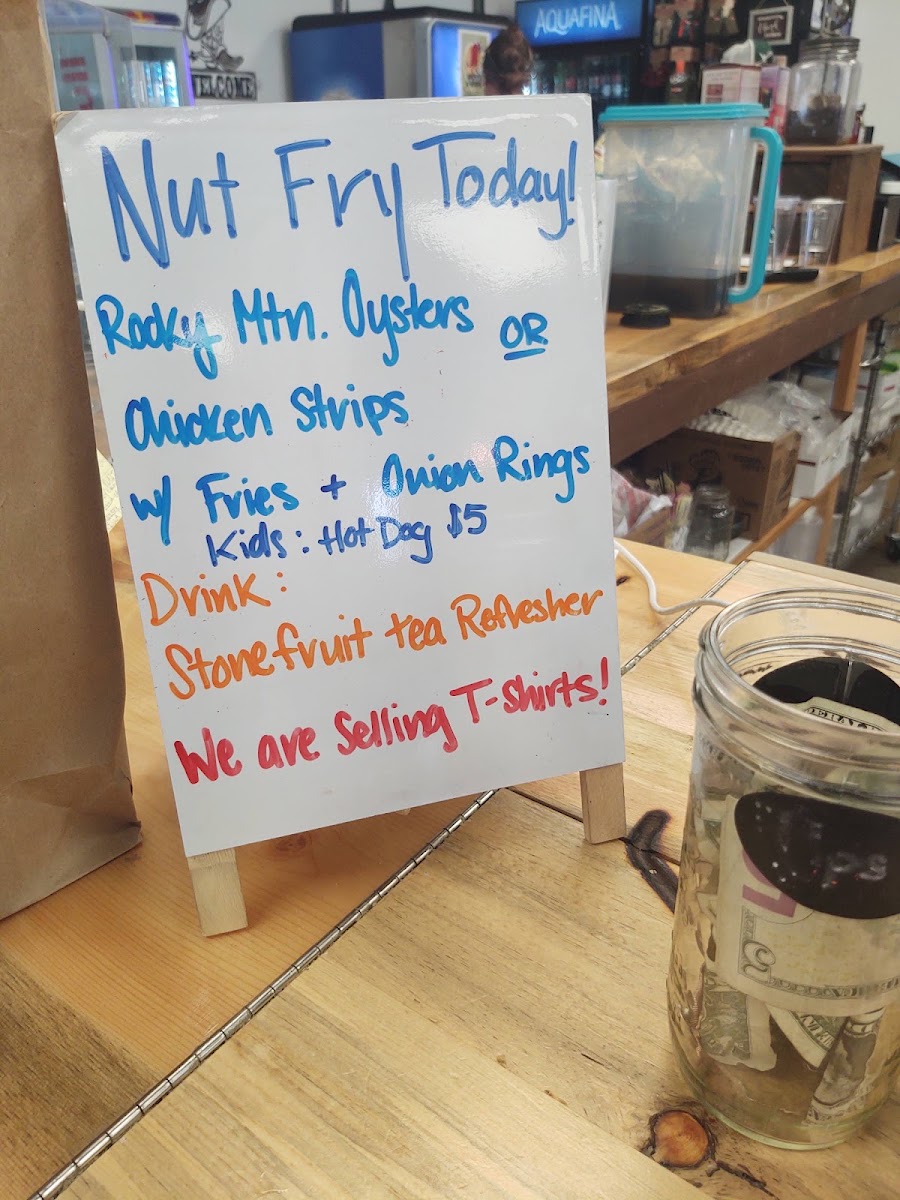 WELCOME
AQUAFINA
Nut Fry Today!
Rocky Mtn. Oysters OR
Chicken Strips
w/ Fries + Onion Rings
Kids: Hot Dog $5
Drink:
Stonefruit tea Refresher
We are Selling T-shirts!